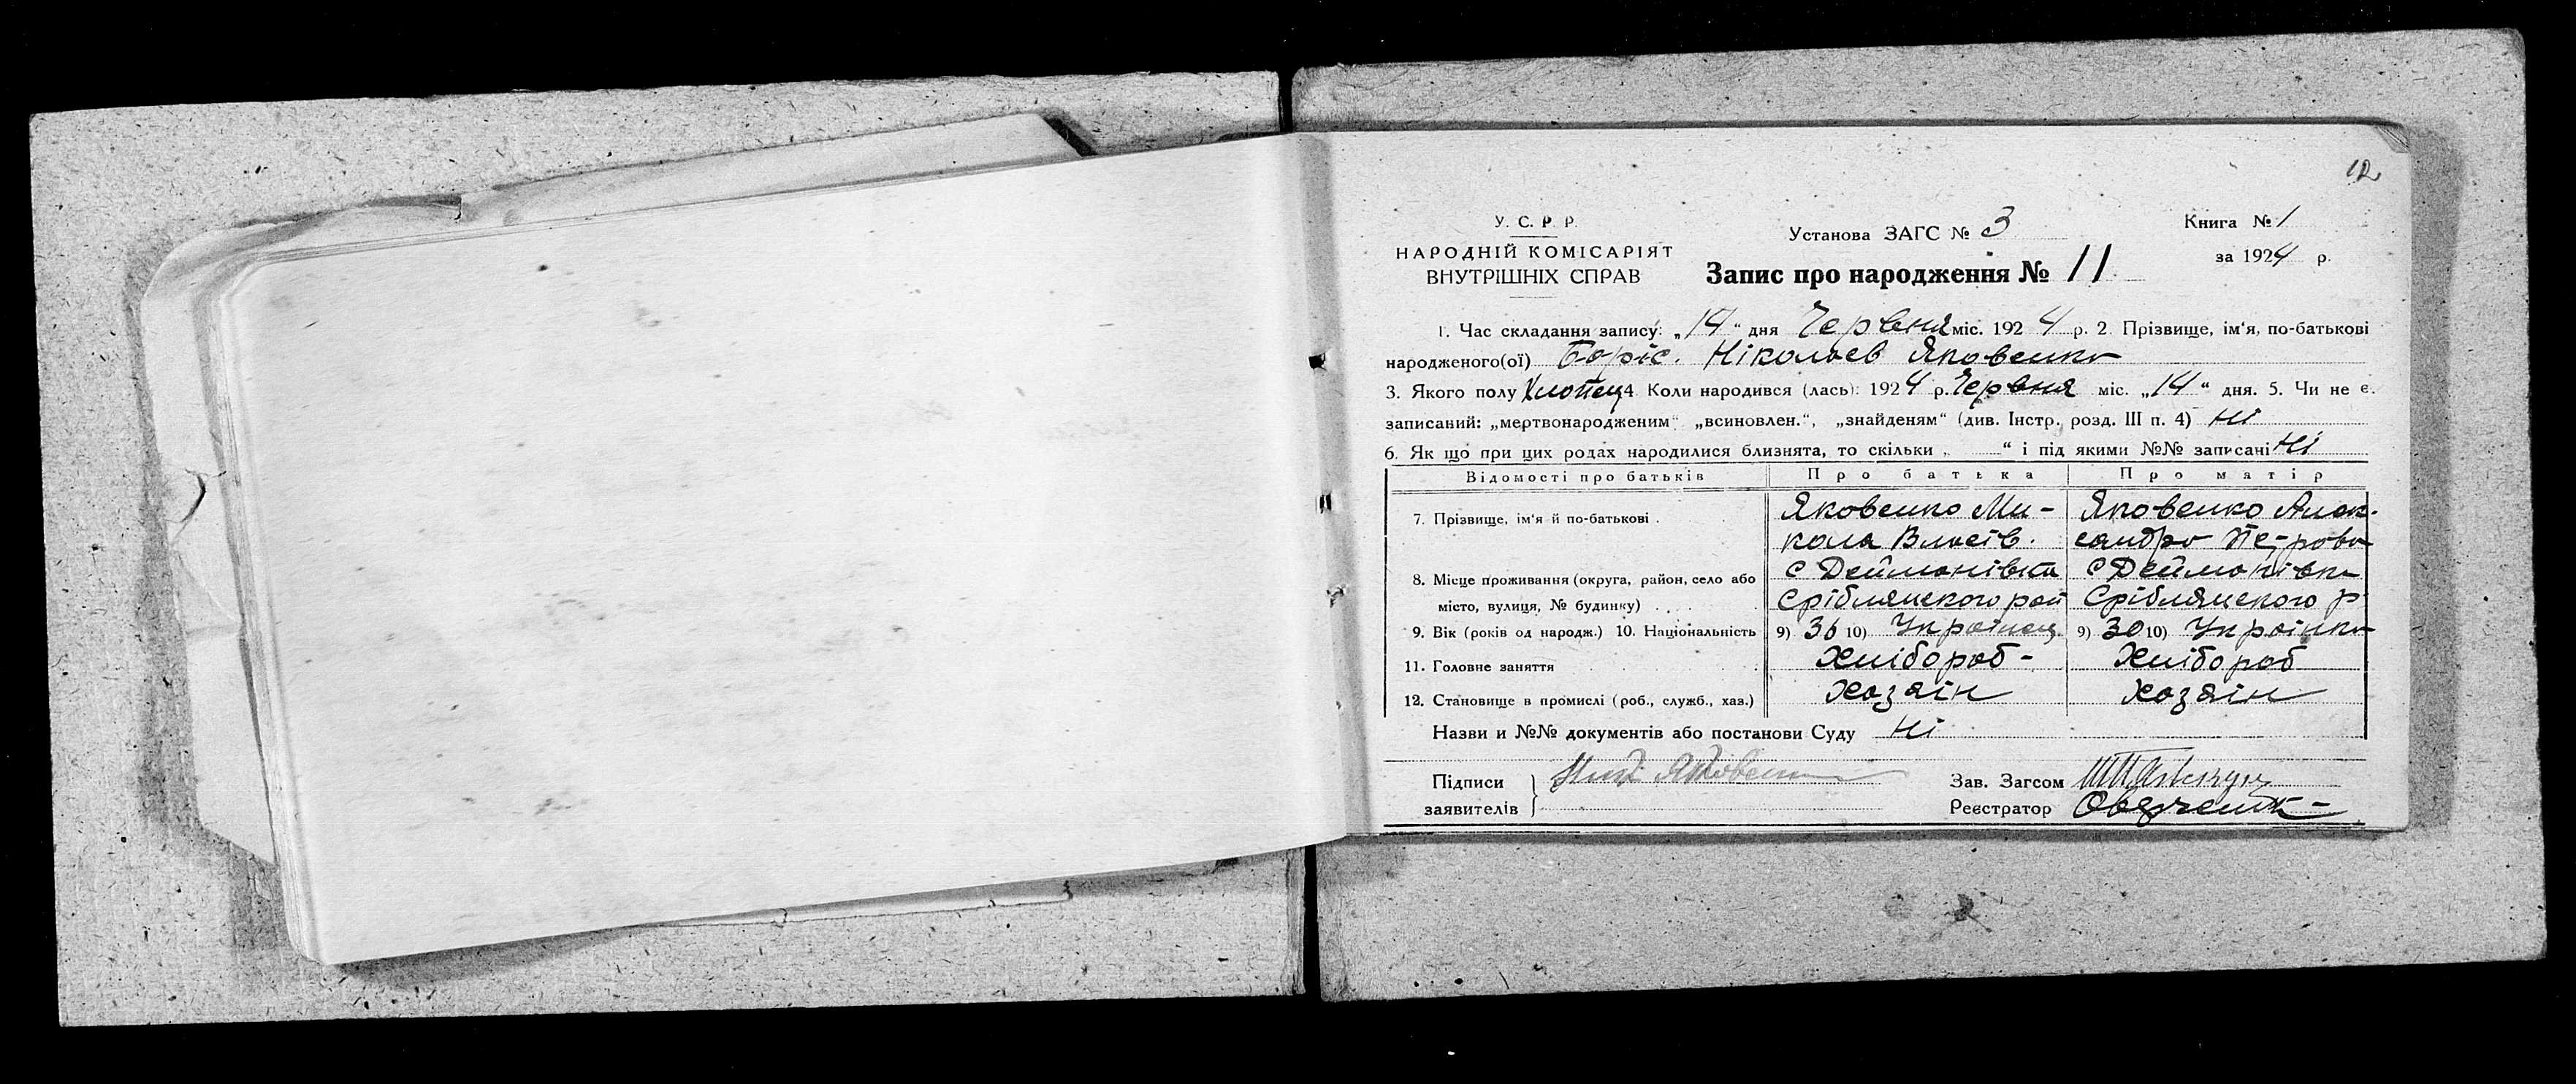 12
У. С. Р. Р.
НАРОДНІЙ КОМІСАРІЯТ
ВНУТРІШНІХ СПРАВ
Установа ЗАГС № 3
Запис про народження № 11
Книга № 1
за 1924 р.
1. Час складання запису: „14“ дня Червня міс. 1924 р. 2. Прізвище, ім'я, по-батькові
народженого(ої) Боріс. Ніколаев Яковенко
3. Якого полу Хлопец 4. Коли народився (лась): 1924 р. Червня міс. „14“ дня. 5. Чи не є
записаний: „мертвонародженим“ „всиновлен.“, „знайденям“ (див. Інстр. розд. III п. 4) Ні
6. Як що при цих родах народилися близнята, то скільки „ “ і під якими №№ записані Ні
Відомості про батьків Про батька Про матір
7. Прізвище, ім'я й по-батькові . Яковенко Ми- Яковенко Алек-
кола Власів. сандра Петрова
8. Місце проживання (округа, район, село або с Дейманівка с Дейманівка
місто, вулиця, № будинку) . . . Срібляцского рай Срібляцского р
9. Вік (років од народж.) 10. Національність 9) 36 10) Українец 9) 30 10) Українка
11. Головне заняття Хлібороб- Хлібороб
12. Становище в промислі (роб., служб., хаз.) Хазяін Хазяін
Назви и №№ документів або постанови Суду Ні
Підписи
заявителів
Яковенко
Зав. Загсом
Реєстратор